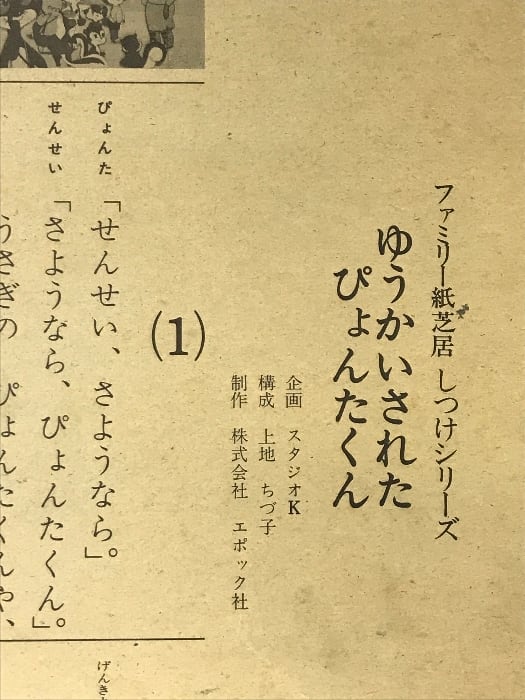 ファミリー紙芝居 しつけシリーズ
ゆうかいされた
ぴょんたくん
企画 スタジオK
構成 上地 ちづ子
制作 株式会社 エポック社
(1)
ぴょんた 「せんせい、さようなら。」
せんせい 「さようなら、ぴょんたくん。」
うさぎの ぴょんたくんや、
げんき